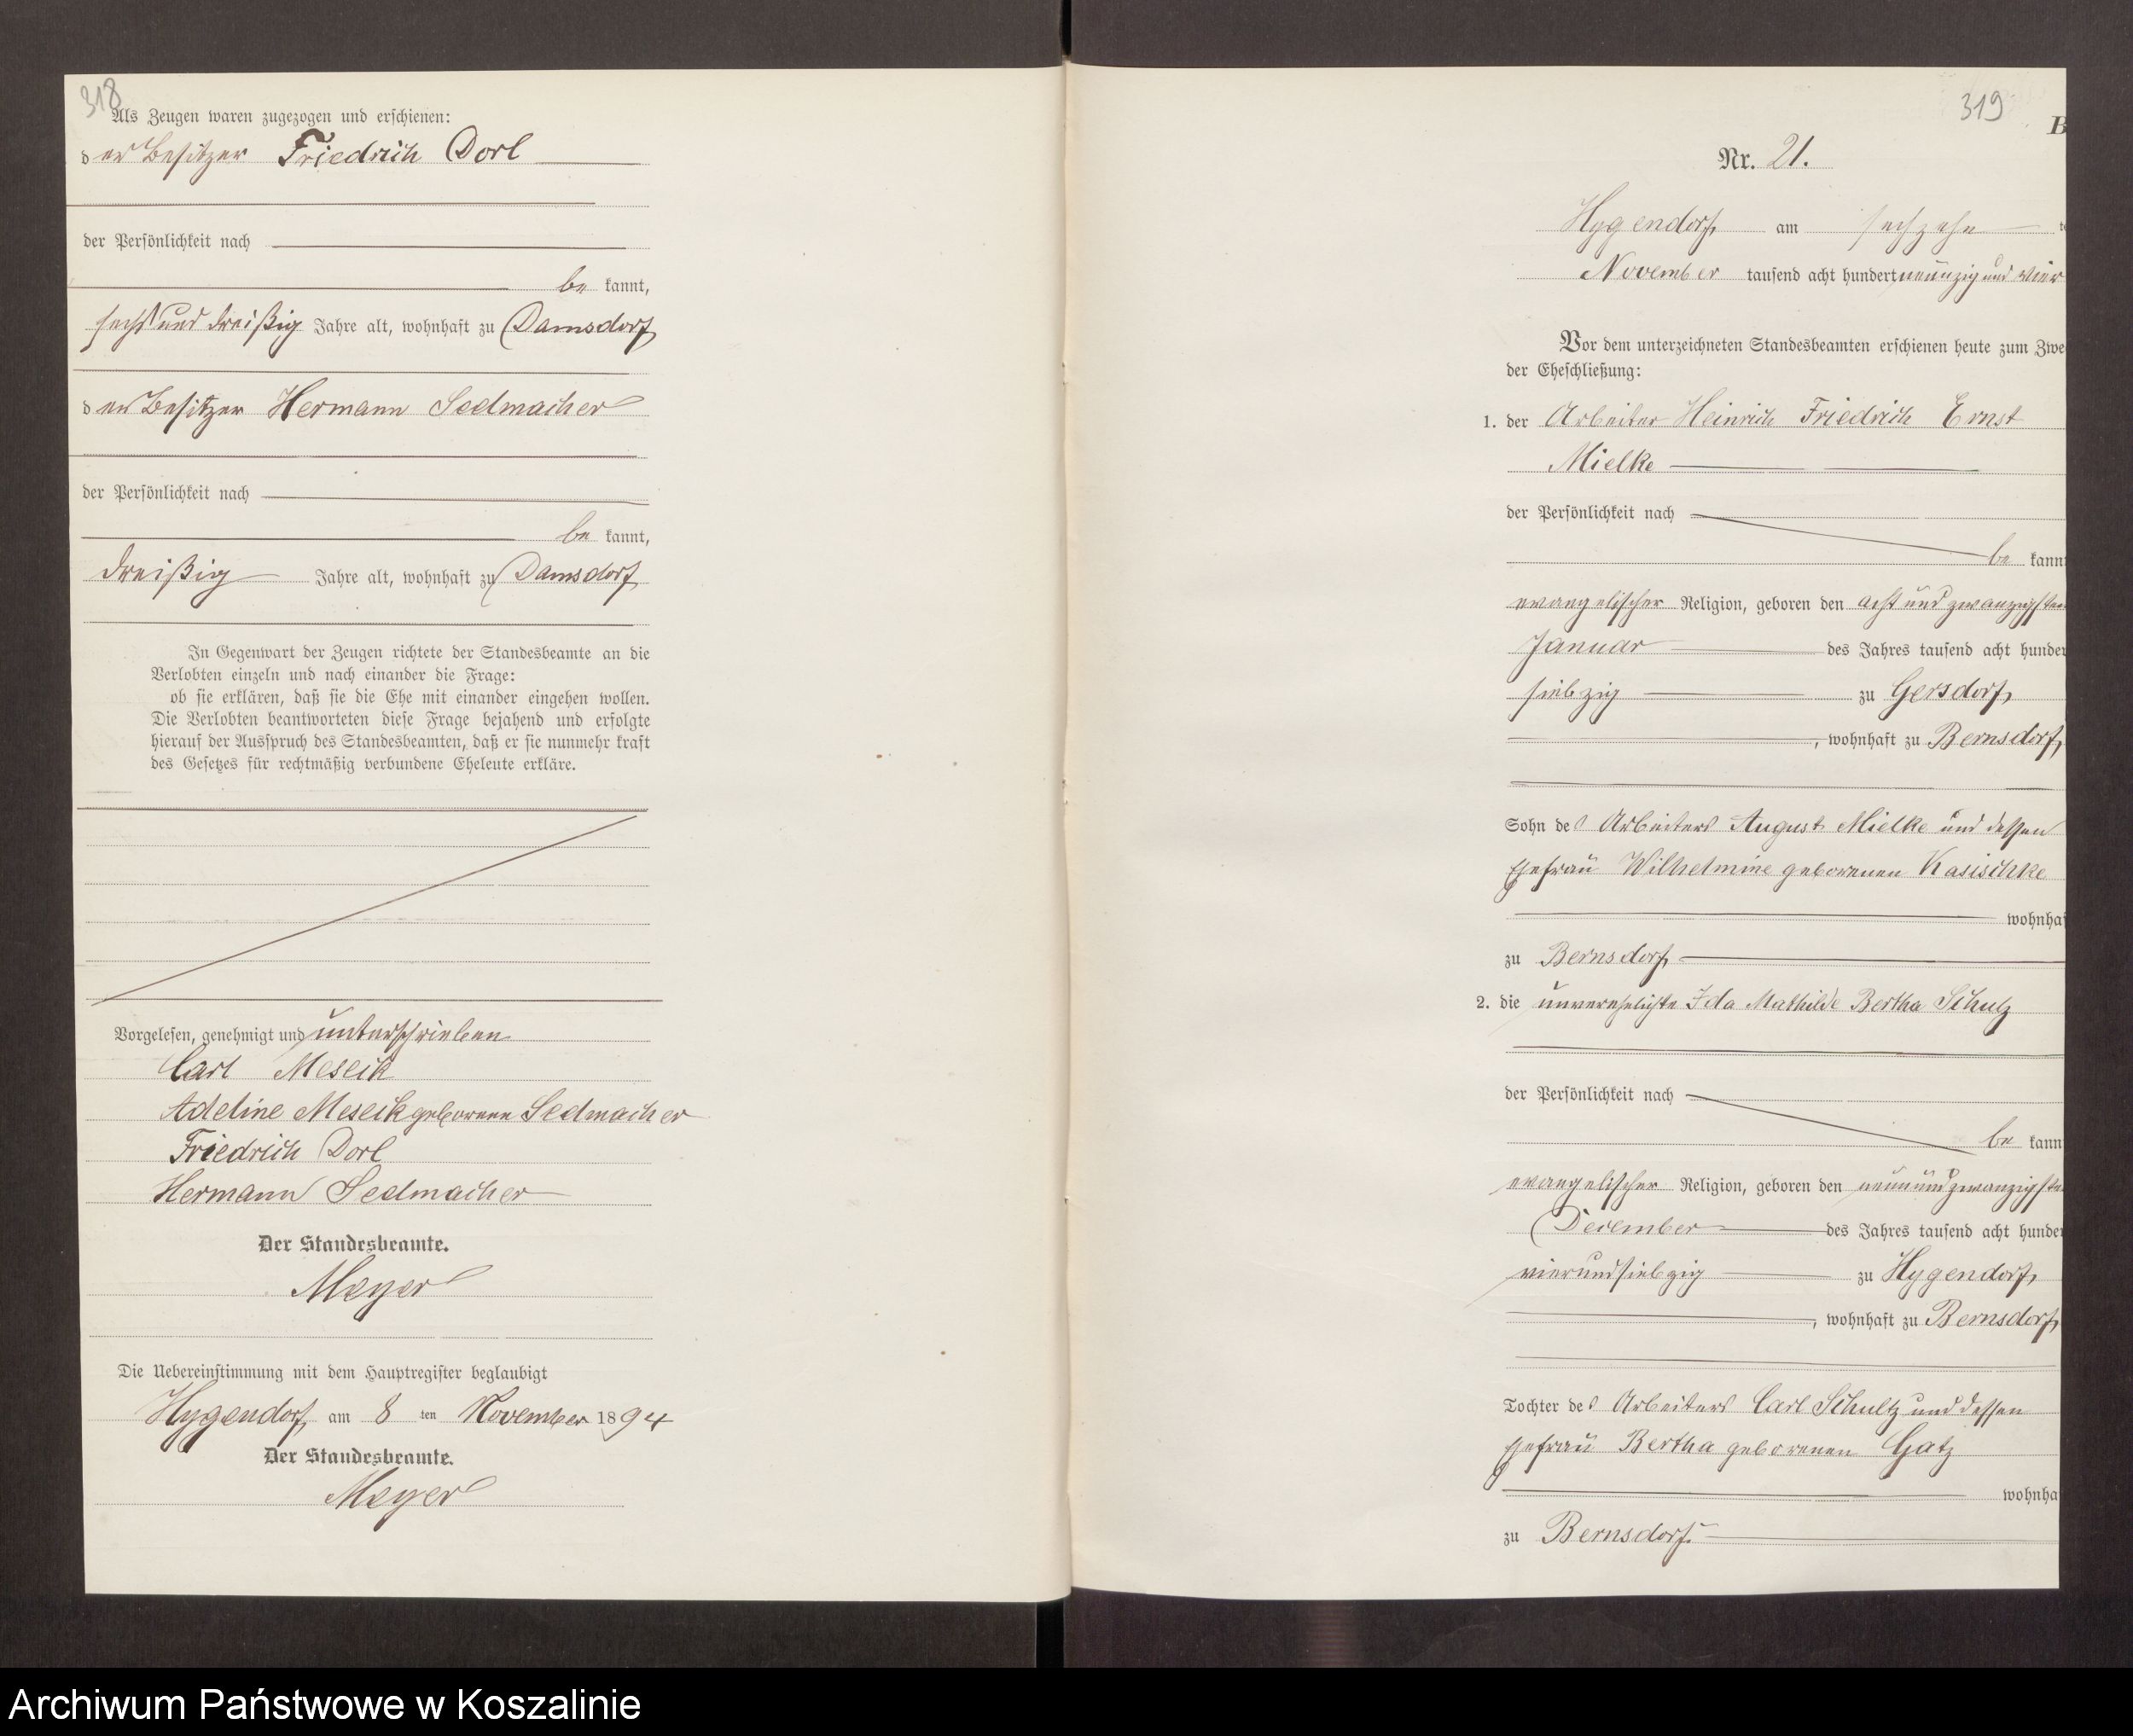 318
Als Zeugen waren zugezogen und erschienen:
der Besitzer Friedrich Dorl
der Persönlichkeit nach
be kannt,
sechs und dreißig Jahre alt, wohnhaft zu Damsdorf
der Besitzer Hermann Sedmacher
der Persönlichkeit nach
be kannt,
dreißig Jahre alt, wohnhaft zu Damsdorf
In Gegenwart der Zeugen richtete der Standesbeamte an die
Verlobten einzeln und nach einander die Frage:
ob sie erklären, daß sie die Ehe mit einander eingehen wollen.
Die Verlobten beantworteten diese Frage bejahend und erfolgte
hierauf der Ausspruch des Standesbeamten, daß er sie nunmehr kraft
des Gesetzes für rechtmäßig verbundene Eheleute erkläre.
Vorgelesen, genehmigt und unterschrieben
Carl Meseik
Adeline Meseik geborene Sedmacher
Friedrich Dorl
Hermann Sedmacher
Der Standesbeamte.
Meyer
Die Uebereinstimmung mit dem Hauptregister beglaubigt
Hygendorf, am 8 ten November 1894
Der Standesbeamte.
Meyer
319
B
Nr. 21.
Hygendorf, am sechzehn te
November tausend acht hundert neunzig und vier
Vor dem unterzeichneten Standesbeamten erschienen heute zum Zwe
der Eheschließung:
1. der Arbeiter Heinrich Friedrich Ernst
Mielke
der Persönlichkeit nach
be kann
evangelischer Religion, geboren den acht und zwanzigsten
Januar des Jahres tausend acht hunder
siebzig zu Gersdorf,
, wohnhaft zu Bernsdorf,
Sohn des Arbeiters August Mielke und dessen
Ehefrau Wilhelmine geborenen Kasischke
wohnhaf
zu Bernsdorf
2. die unverehelichte Ida Mathilde Bertha Schulz
der Persönlichkeit nach
be kann
evangelischer Religion, geboren den neunundzwanzigste
December des Jahres tausend acht hunder
vierundsiebzig zu Hygendorf,
, wohnhaft zu Bernsdorf,
Tochter des Arbeiters Carl Schultz und dessen
Ehefrau Bertha geborenen Gatz
wohnha
zu Bernsdorf.
Archiwum Państwowe w Koszalinie